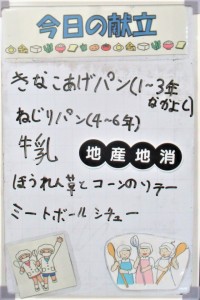 今日の献立
きなこあげパン(1~3年
なかよし)
ねじりパン(4~6年)
牛乳
地産地消
ほうれん草とコーンのソテー
ミートボールシチュー